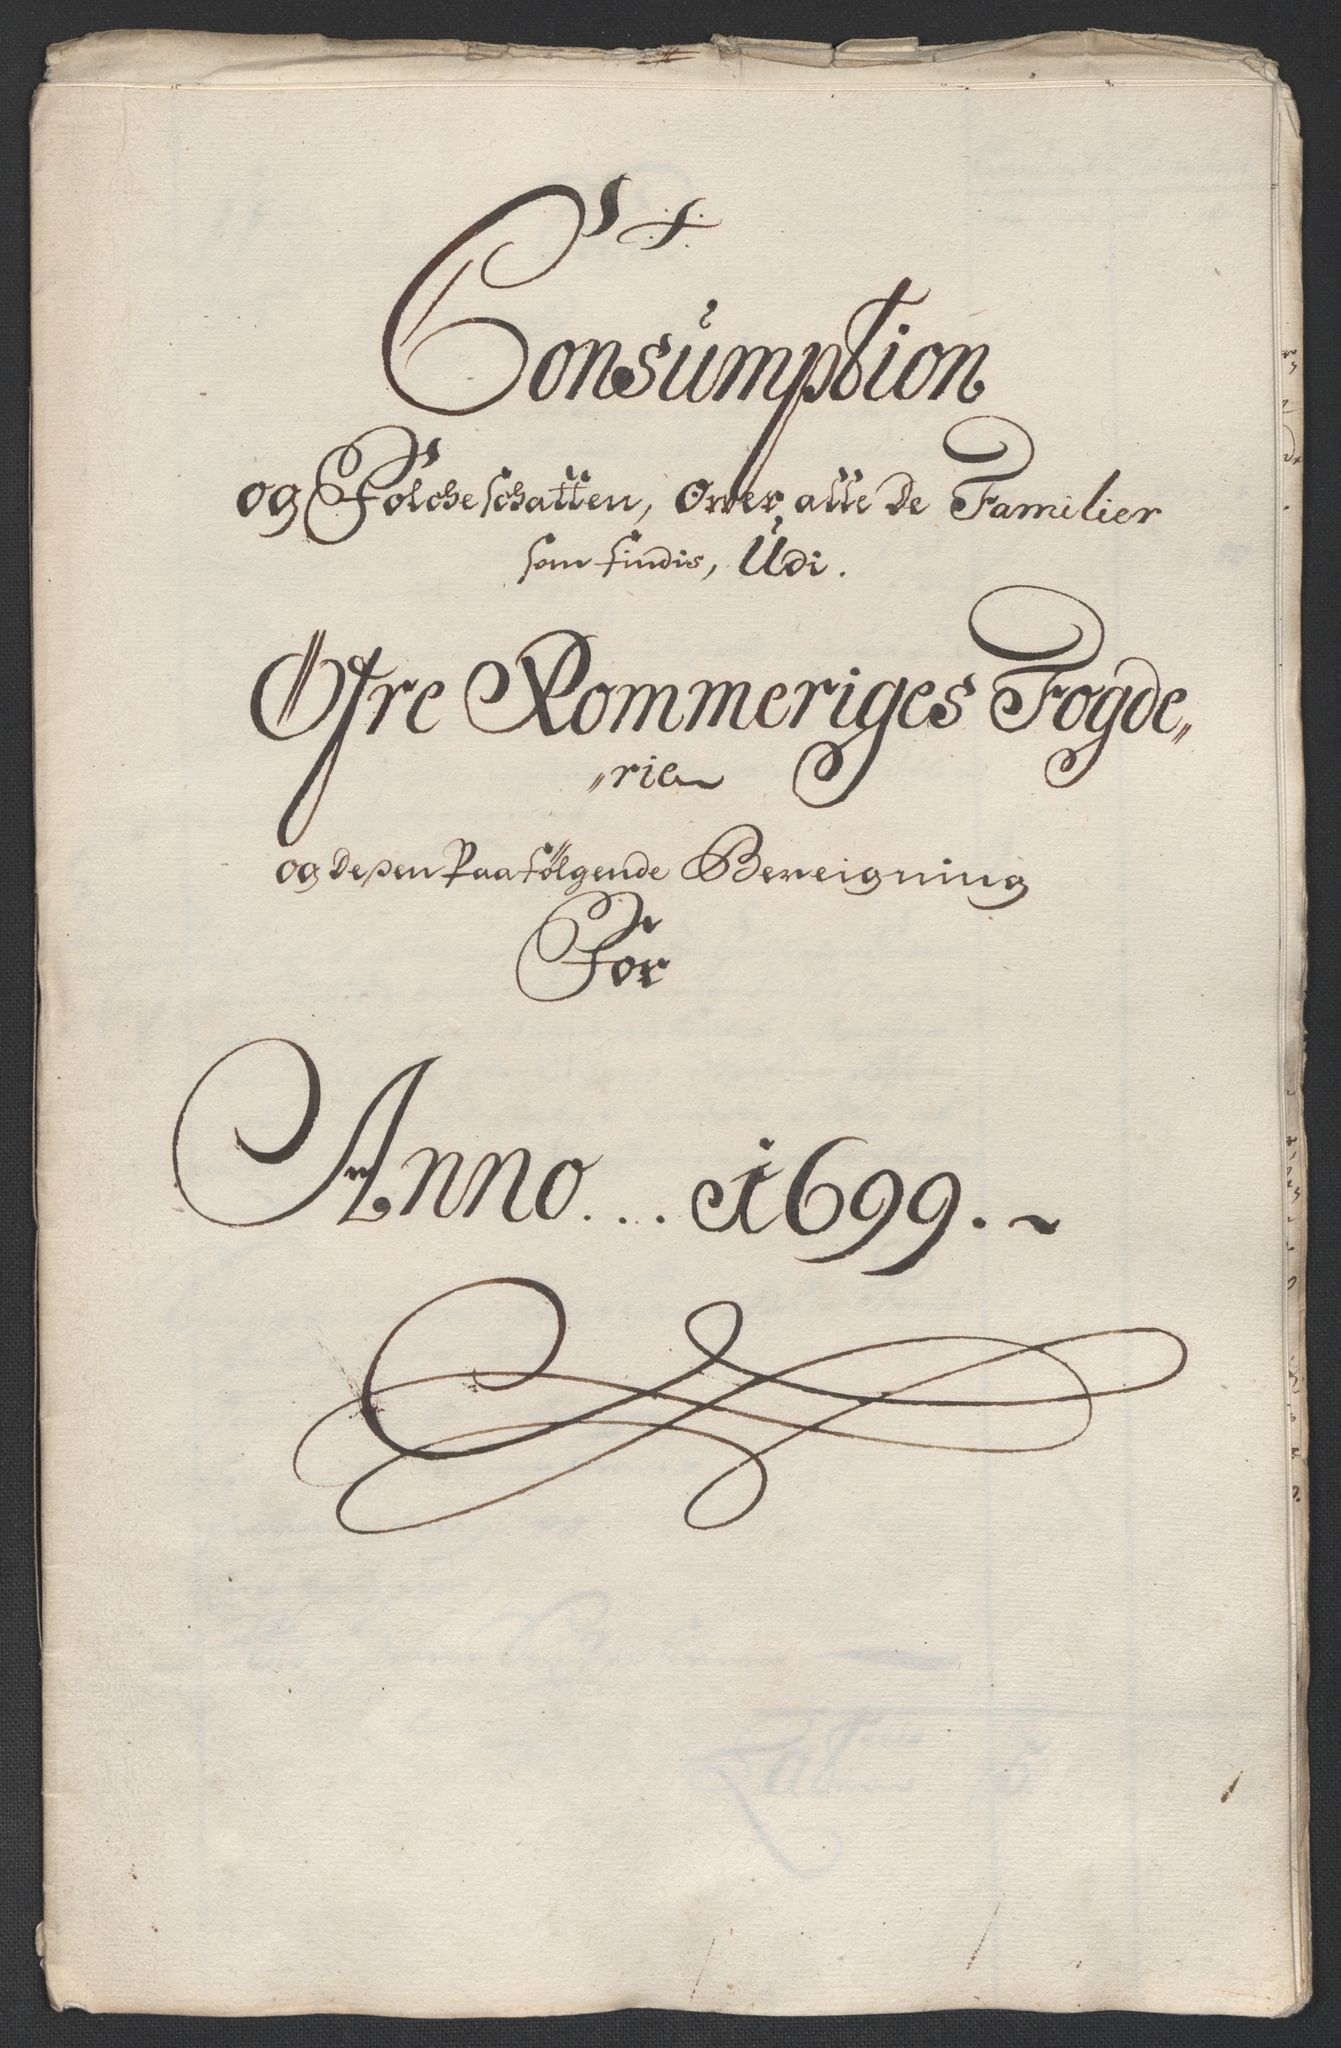 Consumption
og Folcheschatten, Over alle de Familier
som findis, Udi.
Øfre Rommeriges Fogde„
„rie
og desen Paafölgende Bereigning
For
Anno... 1699.~